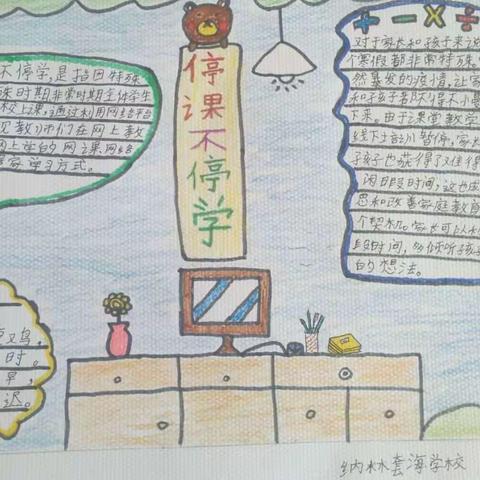 不停学,是指因特殊
殊时期非常时期全体学生
校上课,通过利用网络平台
教师们在网上教
网上学的网课网络
居家学习方式。
停课不停学
+ - × ÷
对于家长和孩子来说
个寒假都非常特殊
然暴发的疫情,让家
和孩子都不得不慢
下来。由于课堂教学
线下培训暂停,家长
孩子也获得了难得
闲暇时间,这也成
思和改善家庭教育
个契机。家长可以利
段时间,多倾听孩子
的想法。
鸡,
时。
早,
迟。
纳林套海学校